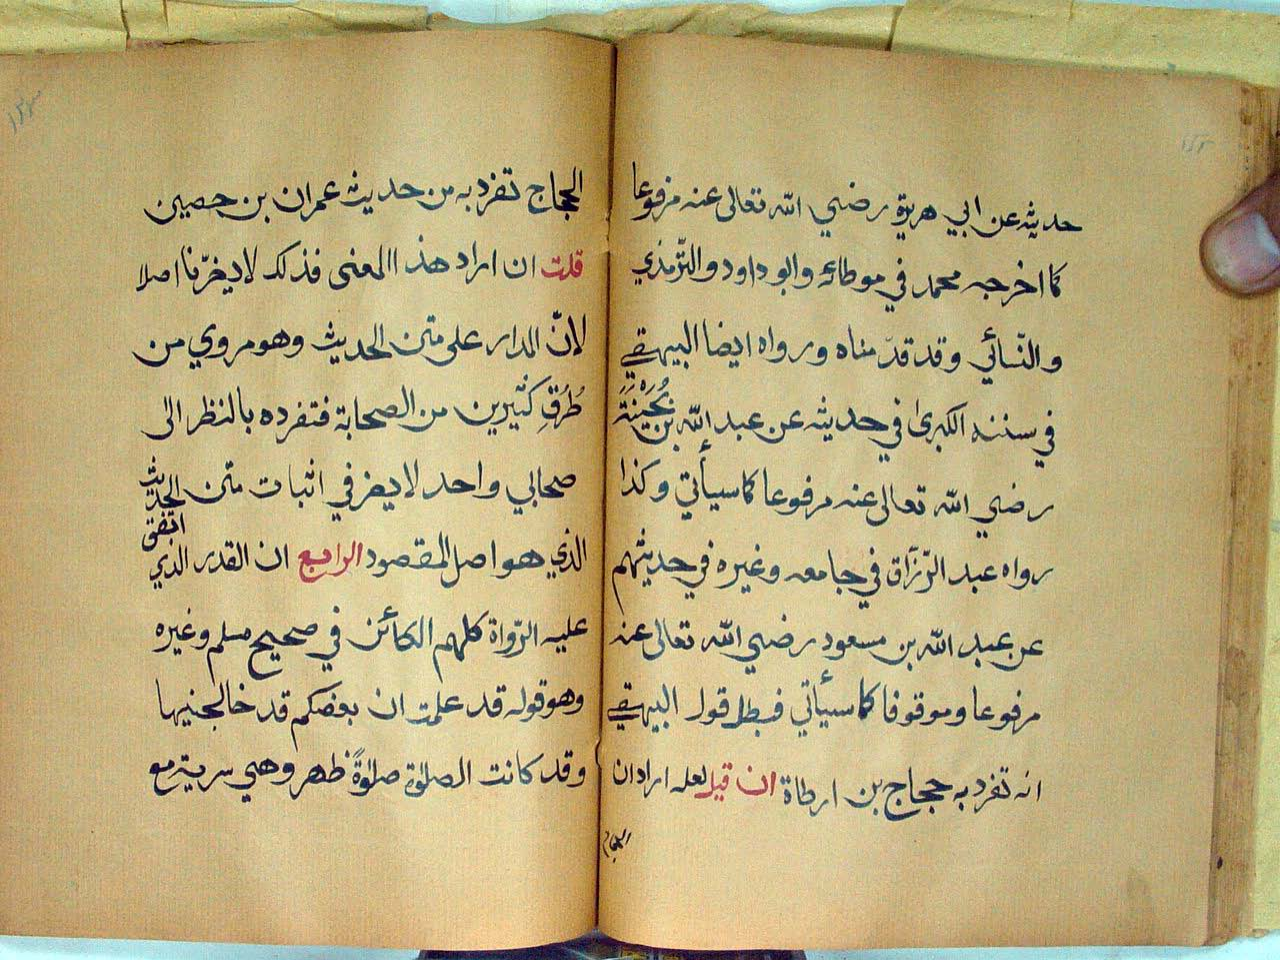 حديثه عن ابي هريرة رضي الله تعالى عنه مرفوعا
كما اخرجه محمد في موطائه وابو داود والترّمذي
والنّسائي وقد قدّمناه ورواه ايضا البيهقي
في سننه الكبرى في حديثه عن عبد الله بن بُحَيْنَةَ
رضي الله تعالى عنه مرفوعا كما سيأتي وكذا
رواه عبد الرّزّاق في جامعه وغيره في حديثهم
عن عبد الله بن مسعود رضي الله تعالى عنه
مرفوعا وموقوفا كما سيأتي فبطل قول البيهقي
انه تفرد به حجاج بن ارطاة ان قيل لعله اراد ان
الحجاج
الحجاج تفرد به من حديث عمران بن حصين
قلت ان اراد هذا المعنى فذلك لا يضرّنا اصلا
لانّ المدار على متن الحديث وهو مروي من
طُرُقٍ كثيرين من الصحابة فتفرده بالنظر الى
صحابي واحد لا يضر في اثبات متن الحديث
الذي هو اصل المقصود الرابع ان القدر الذي اتفق
عليه الرّواة كلهم الكائن في صحيح مسلم وغيره
وهو قوله قد علمت ان بعضكم قد خالجنيها
وقد كانت الصلوة صلوةً ظهر وهي سرية مع